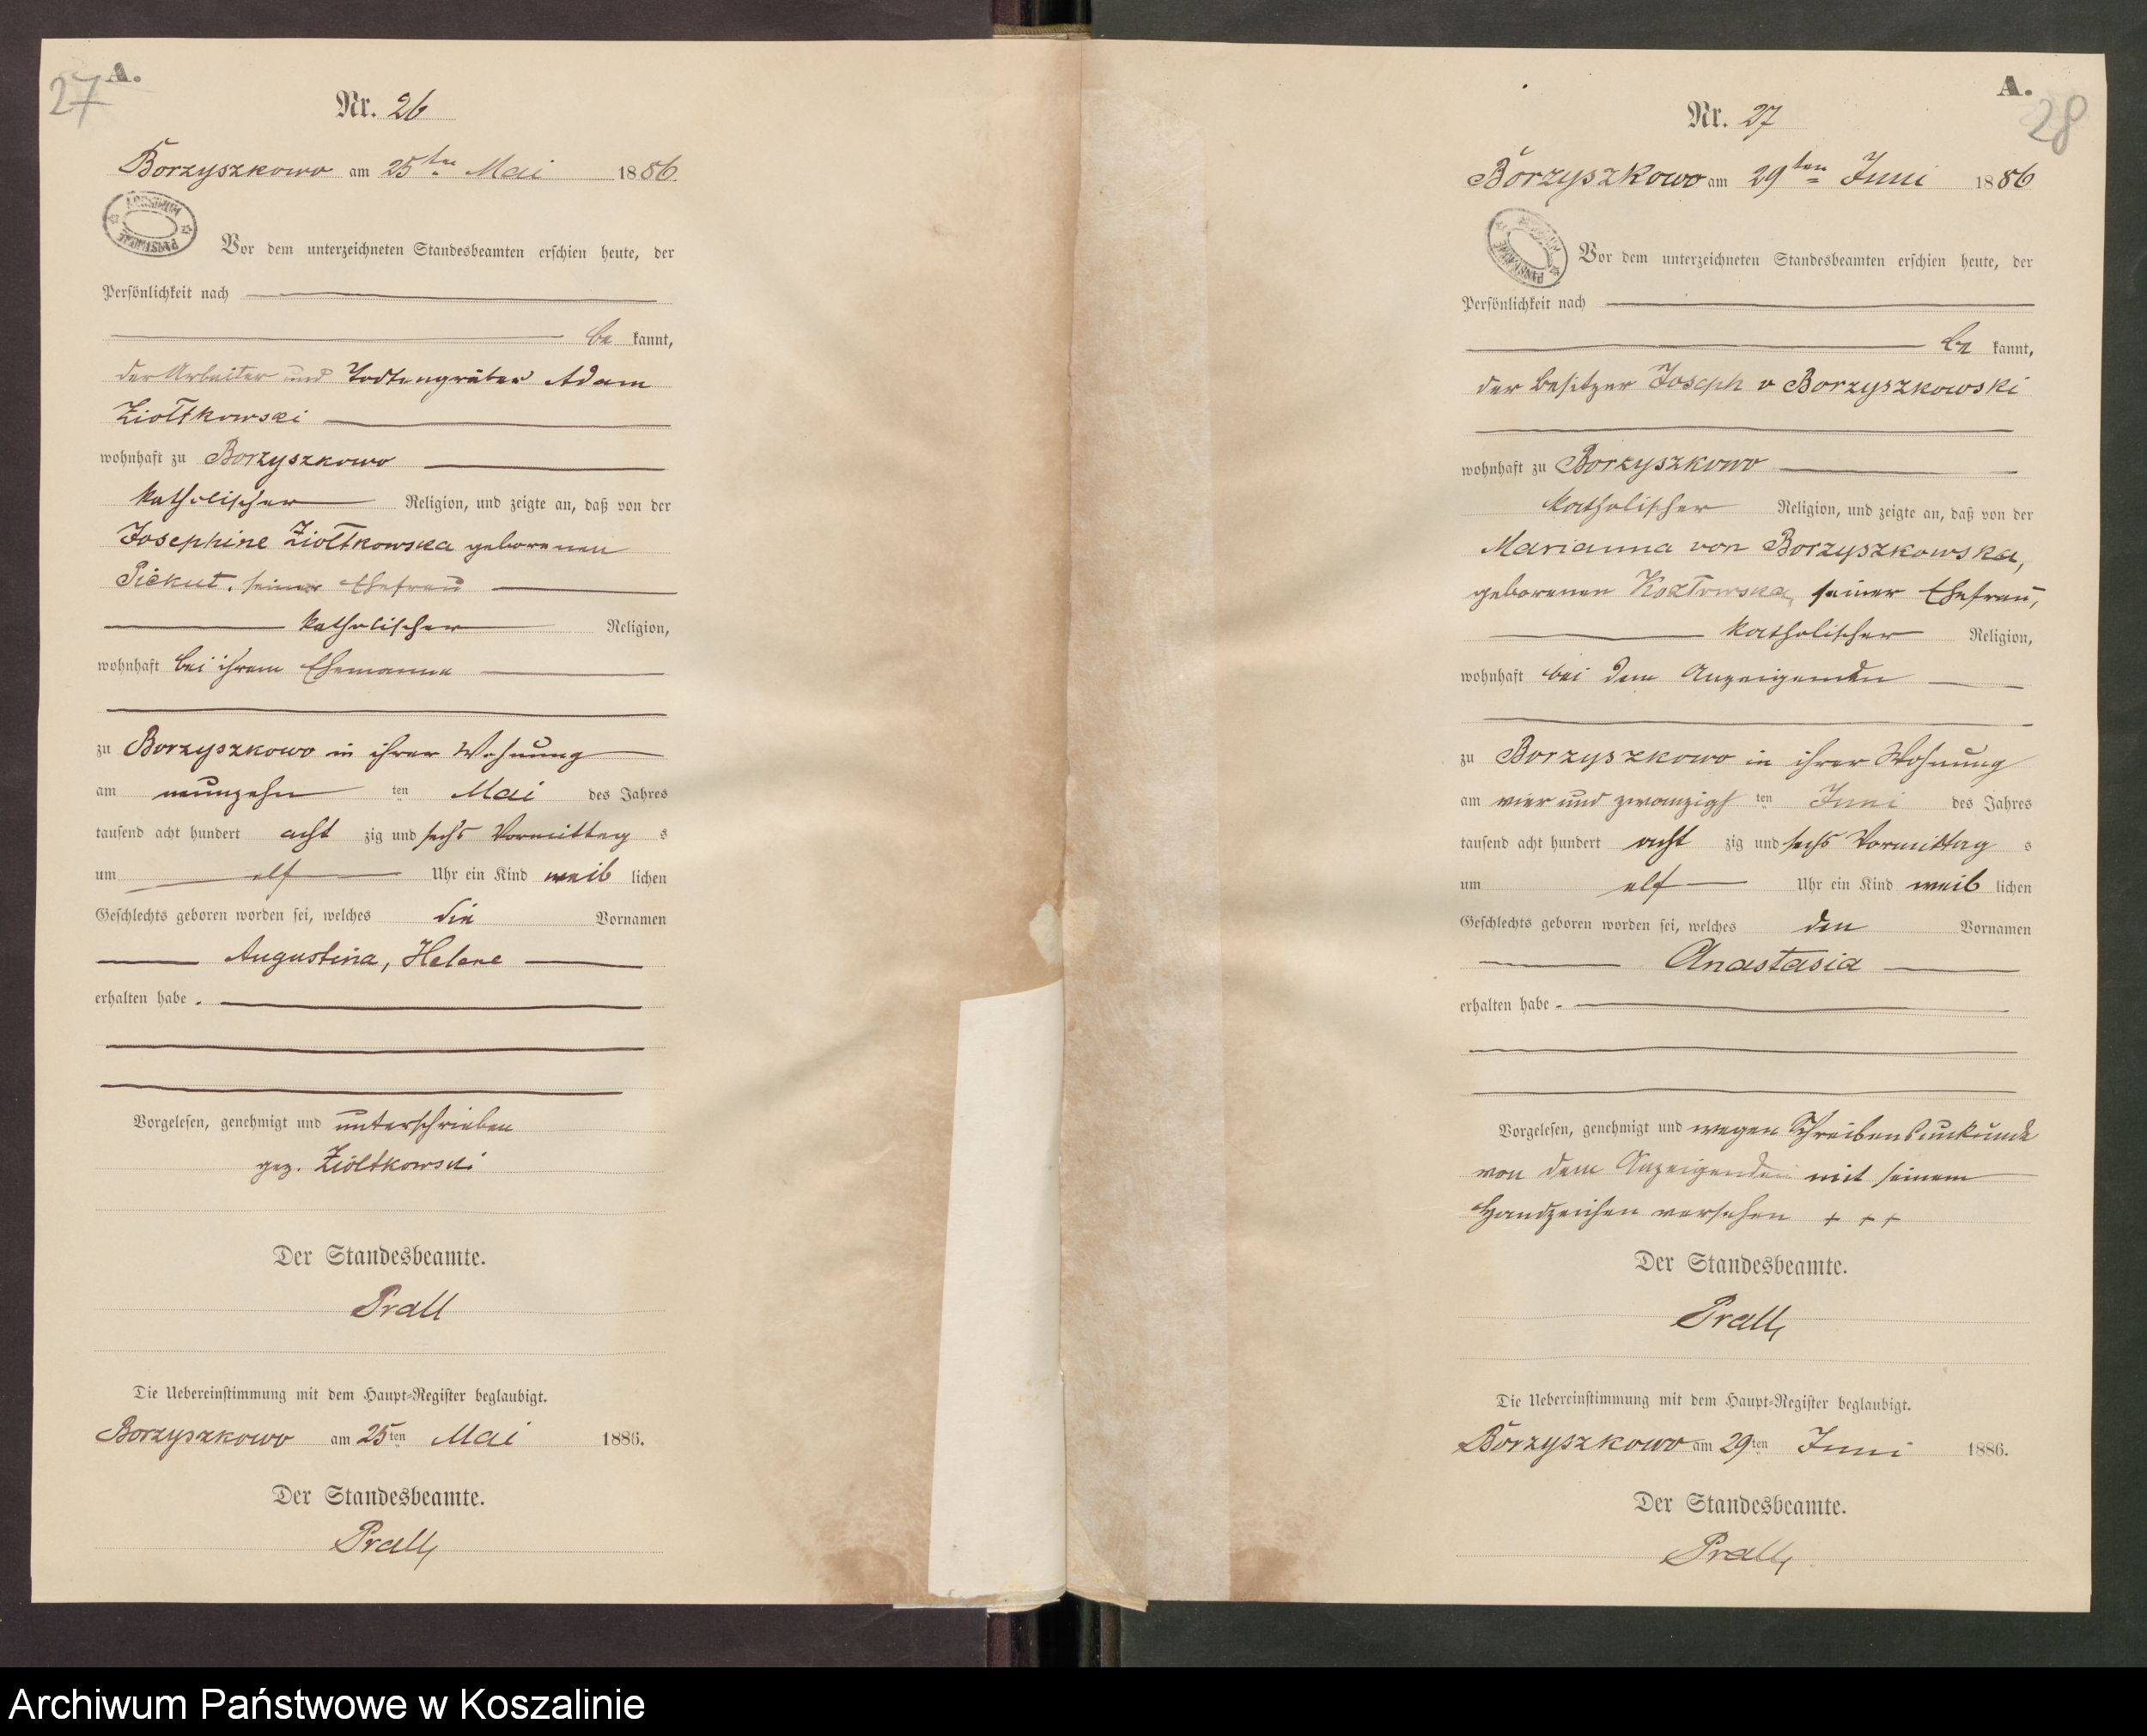 27
A.
Nr. 26
Borzyszkowo am 25ten Mai 1886
ARCHIWUM PAŃSTWOWE
Vor dem unterzeichneten Standesbeamten erschien heute, der
Persönlichkeit nach
be kannt,
der Arbeiter und Todtengräber Adam
Ziołtkowski
wohnhaft zu Borzyszkowo
katholischer Religion, und zeigte an, daß von der
Josephine Ziołtkowska geborenen
Piekut, seiner Ehefrau
katholischer Religion,
wohnhaft bei ihrem Ehemanne
zu Borzyszkowo in ihrer Wohnung
am neunzehn ten Mai des Jahres
tausend acht hundert acht zig und sechs Vormittag s
um elf Uhr ein Kind weib lichen
Geschlechts geboren worden sei, welches die Vornamen
Augustina, Helene
erhalten habe.
Vorgelesen, genehmigt und unterschrieben
gez. Ziółtkowski
Der Standesbeamte.
Prall
Die Uebereinstimmung mit dem Haupt-Register beglaubigt.
Borzyszkowo am 25ten Mai 1886.
Der Standesbeamte.
Prall
A.
28
Nr. 27
Borzyszkowo am 29ten Juni 1886
ARCHIWUM PAŃSTWOWE
Vor dem unterzeichneten Standesbeamten erschien heute, der
Persönlichkeit nach
be kannt,
der Besitzer Joseph v Borzyszkowski
wohnhaft zu Borzyszkowo
katholischer Religion, und zeigte an, daß von der
Marianna von Borzyszkowska,
geborenen Kozłowska, seiner Ehefrau,
katholischer Religion,
wohnhaft bei dem Anzeigenden
zu Borzyszkowo in ihrer Wohnung
am vier und zwanzigs ten Juni des Jahres
tausend acht hundert acht zig und sechs Vormittag s
um elf Uhr ein Kind weib lichen
Geschlechts geboren worden sei, welches den Vornamen
Anastasia
erhalten habe.
Vorgelesen, genehmigt und wegen Schreibensunkunde
von dem Anzeigenden mit seinem
Handzeichen versehen + + +
Der Standesbeamte.
Prall
Die Uebereinstimmung mit dem Haupt-Register beglaubigt.
Borzyszkowo am 29ten Juni 1886.
Der Standesbeamte.
Prall
Archiwum Państwowe w Koszalinie